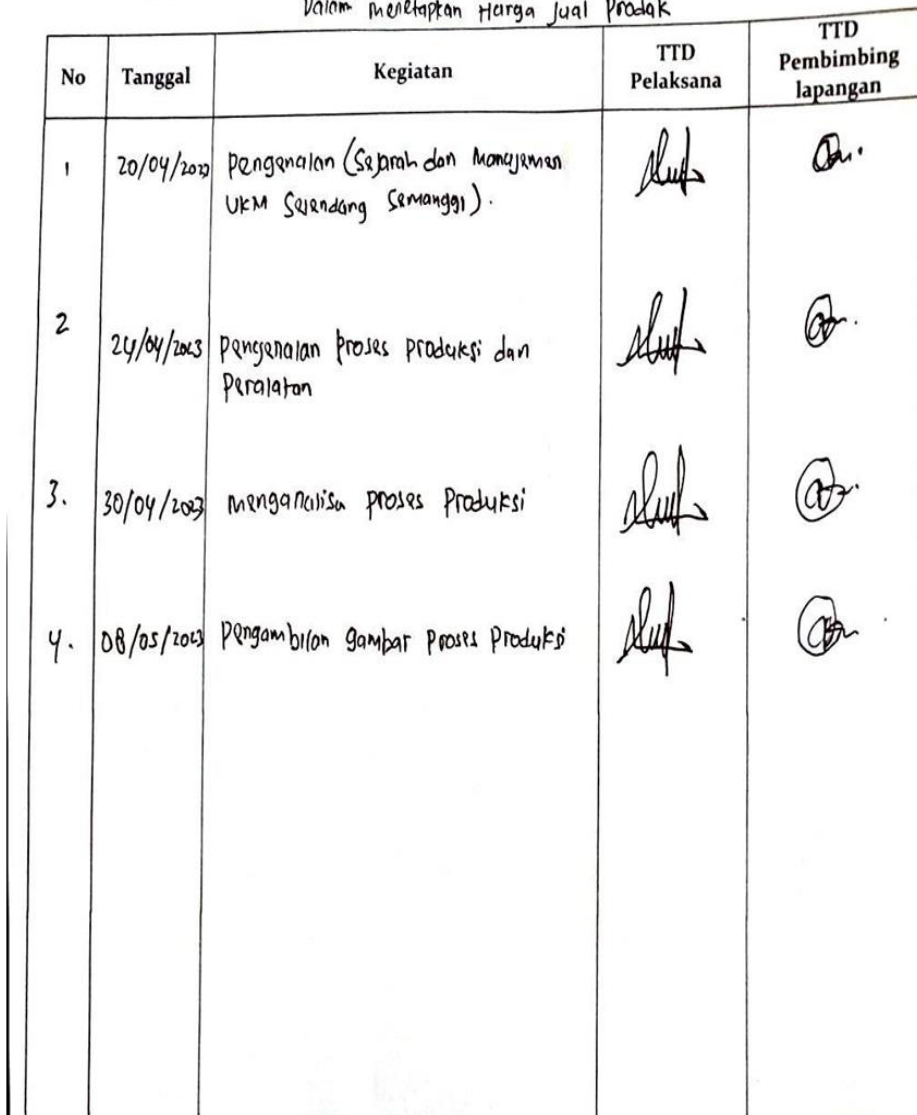 Dalam menetapkan Harga Jual Prodak
No Tanggal Kegiatan TTD Pelaksana TTD Pembimbing lapangan
1 20/04/2023 Pengenalan (Sejarah dan Manajemen
UKM Selendang Semanggi).
2 24/04/2023 Pengenalan proses produksi dan
Peralatan
3. 30/04/2023 Menganalisa proses Produksi
4. 08/05/2023 Pengambilan gambar proses Produksi